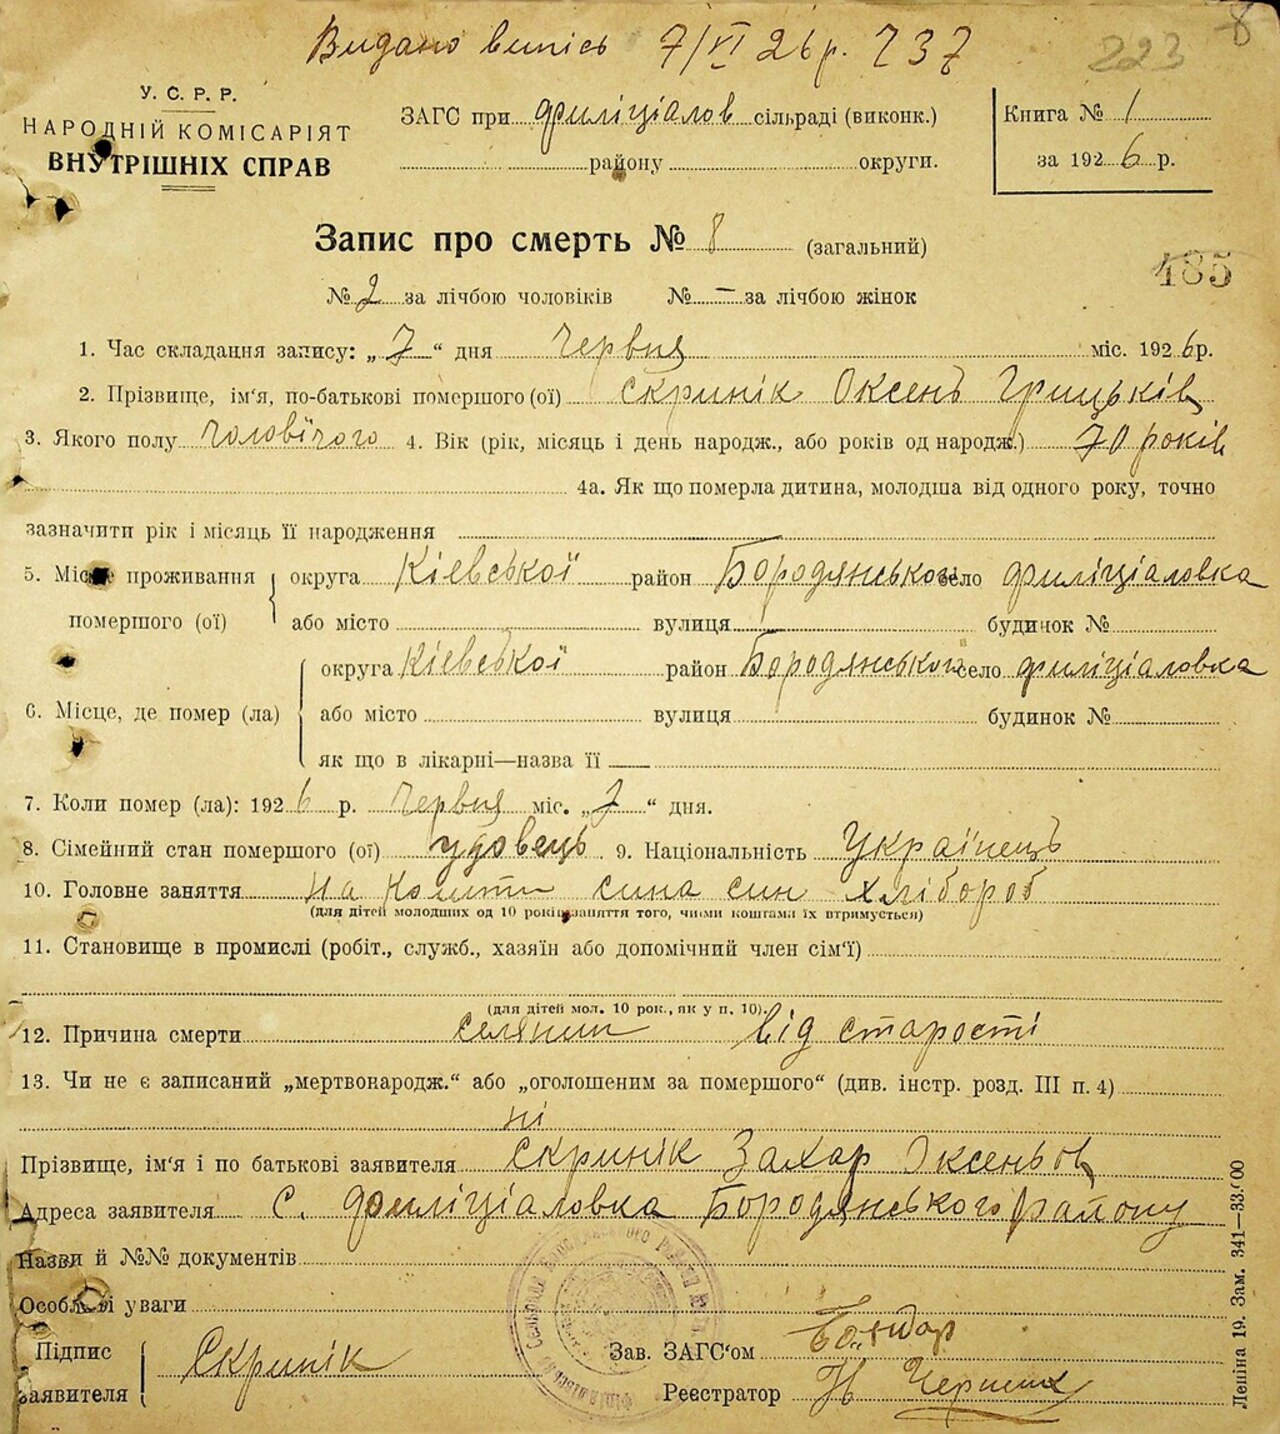 Видано випісь 7/VI 26 р. 237
223
8
У. С. Р. Р.
НАРОДНІЙ КОМІСАРІЯТ
ВНУТРІШНІХ СПРАВ
ЗАГС при Филіціалов сільраді (виконк.)
району округи.
Книга № 1
за 1926 р.
Запис про смерть № 8 (загальний)
485
№ 2 за лічбою чоловіків № – за лічбою жінок
1. Час складання запису: „7“ дня Червня міс. 1926 р.
2. Прізвище, ім‘я, по-батькові помершого (ої) Скринік Оксень Грицьків
3. Якого полу чоловічого 4. Вік (рік, місяць і день народж., або років од народж.) 70 років
4а. Як що померла дитина, молодша від одного року, точно
зазначити рік і місяць її народження
5. Місце проживання помершого (ої) округа Кіевської район Бородянського село Филіціаловка
або місто вулиця будинок №
6. Місце, де помер (ла) округа Кіевської район Бородянського село Филіціаловка
або місто вулиця будинок №
як що в лікарні—назва її —
7. Коли помер (ла): 1926 р. Червня міс. „7“ дня.
8. Сімейний стан помершого (ої) удовець 9. Національність Українець
10. Головне заняття на кошти сина син хлібороб
(для дітей молодших од 10 років заняття того, чиїми коштами їх втримується)
11. Становище в промислі (робіт., служб., хазяїн або допомічний член сім‘ї)
(для дітей мол. 10 рок., як у п. 10).
12. Причина смерти селянин від старості
13. Чи не є записаний „мертвонародж.“ або „оголошеним за помершого“ (див. інстр. розд. III п. 4)
ні
Прізвище, ім‘я і по батькові заявителя Скринік Захар Оксеньов
Адреса заявителя с. Филіціаловка Бородянського району
Назви й №№ документів
Особливі уваги
Підпис заявителя Скринік
Зав. ЗАГС‘ом Бондар
Реестратор
Леніна 19. Зам. 341—33.000